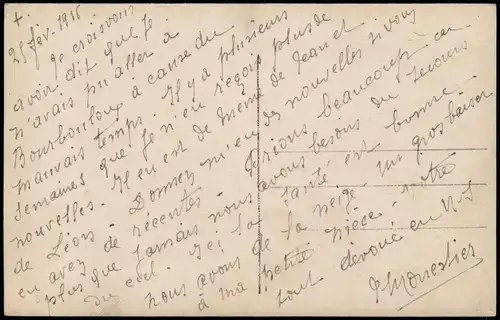 +
25 fév. 1916
Je crois vous
avoir dit que je
n'avais pu aller à
Bourbouloux à cause du
mauvais temps. Il y a plusieurs
semaines que je n'en reçois plus de
nouvelles. Il en est de même de Jean et
de Léon. Donnez m'en des nouvelles si vous
en avez de récentes. Prions beaucoup car
plus que jamais nous avons besoin du secours
du ciel. Ici la santé est bonne.
nous avons de la neige. Un gros baiser
à ma petite nièce. Votre
tout dévoué en N.S.
Monestier